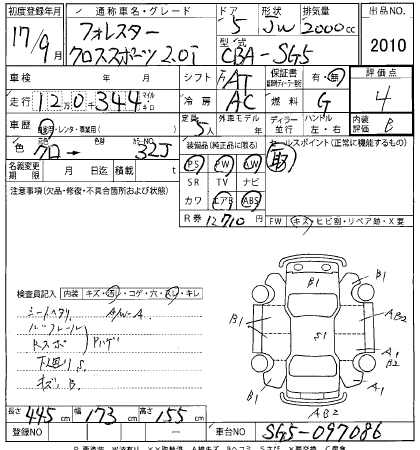 初度登録年月 通称車名・グレード ドア 形状 排気量 出品NO.
17/9月 フォレスター クロススポーツ 2.0i 5 JW 2000cc 2010
型式 CBA-SG5
車検 年 月 シフト FAT 保証書 有・無 評価点
走行 12万0千344 マイル キロ 冷房 AC 燃料 G 4
車歴 自家用・レンタ・事業用( ) 定員 5人 外車モデル 年 ディーラー 並行 ハンドル 左・右 内装評価 B
色 クロ→ 色替 カラーNO. 32J 装備品(純正品に限る) セールスポイント(正常に機能するもの)
PS PW AW 取
名義変更期限 月 日迄 積載 t SR TV ナビ
注意事項(欠品・修復・不具合箇所および状態) カワ エアB ABS
R券 12710円 FW キズ・ヒビ割・リペア跡・X要
検査員記入 内装 キズ・汚レ・コゲ・穴・スレ・キレ
シートヘタリ A/W-A
ルーフレール
Rスポ ハゲ
下廻りS
キズ、B.
B1 B1 A1 B1 S1 B1 A2 A1 A1 AB2
長さ 445cm 幅 173cm 高さ 155cm
登録NO 車台NO SG5-097086